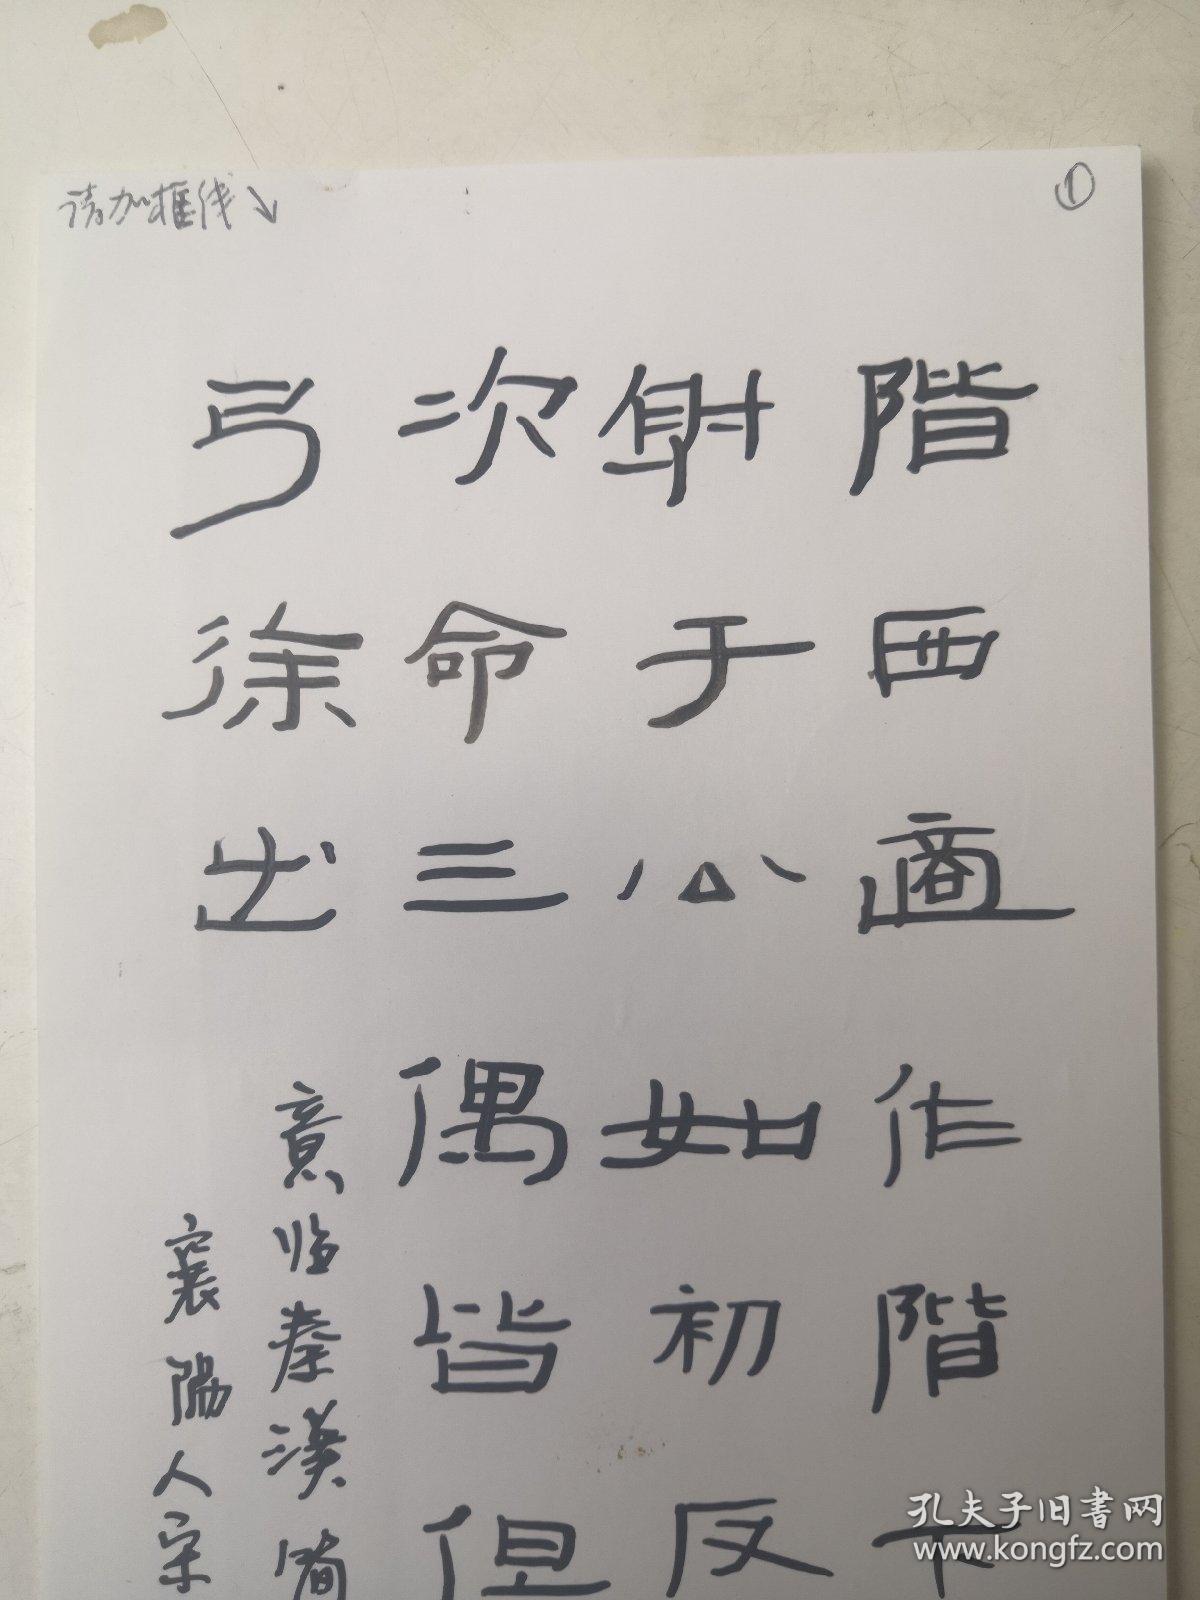 请加框线↘
①
階西適作階下
射于公如初反
次命三偶皆但
弓徐出
意临秦漢简
襄陽人宋
孔夫子旧书网
www.kongfz.com